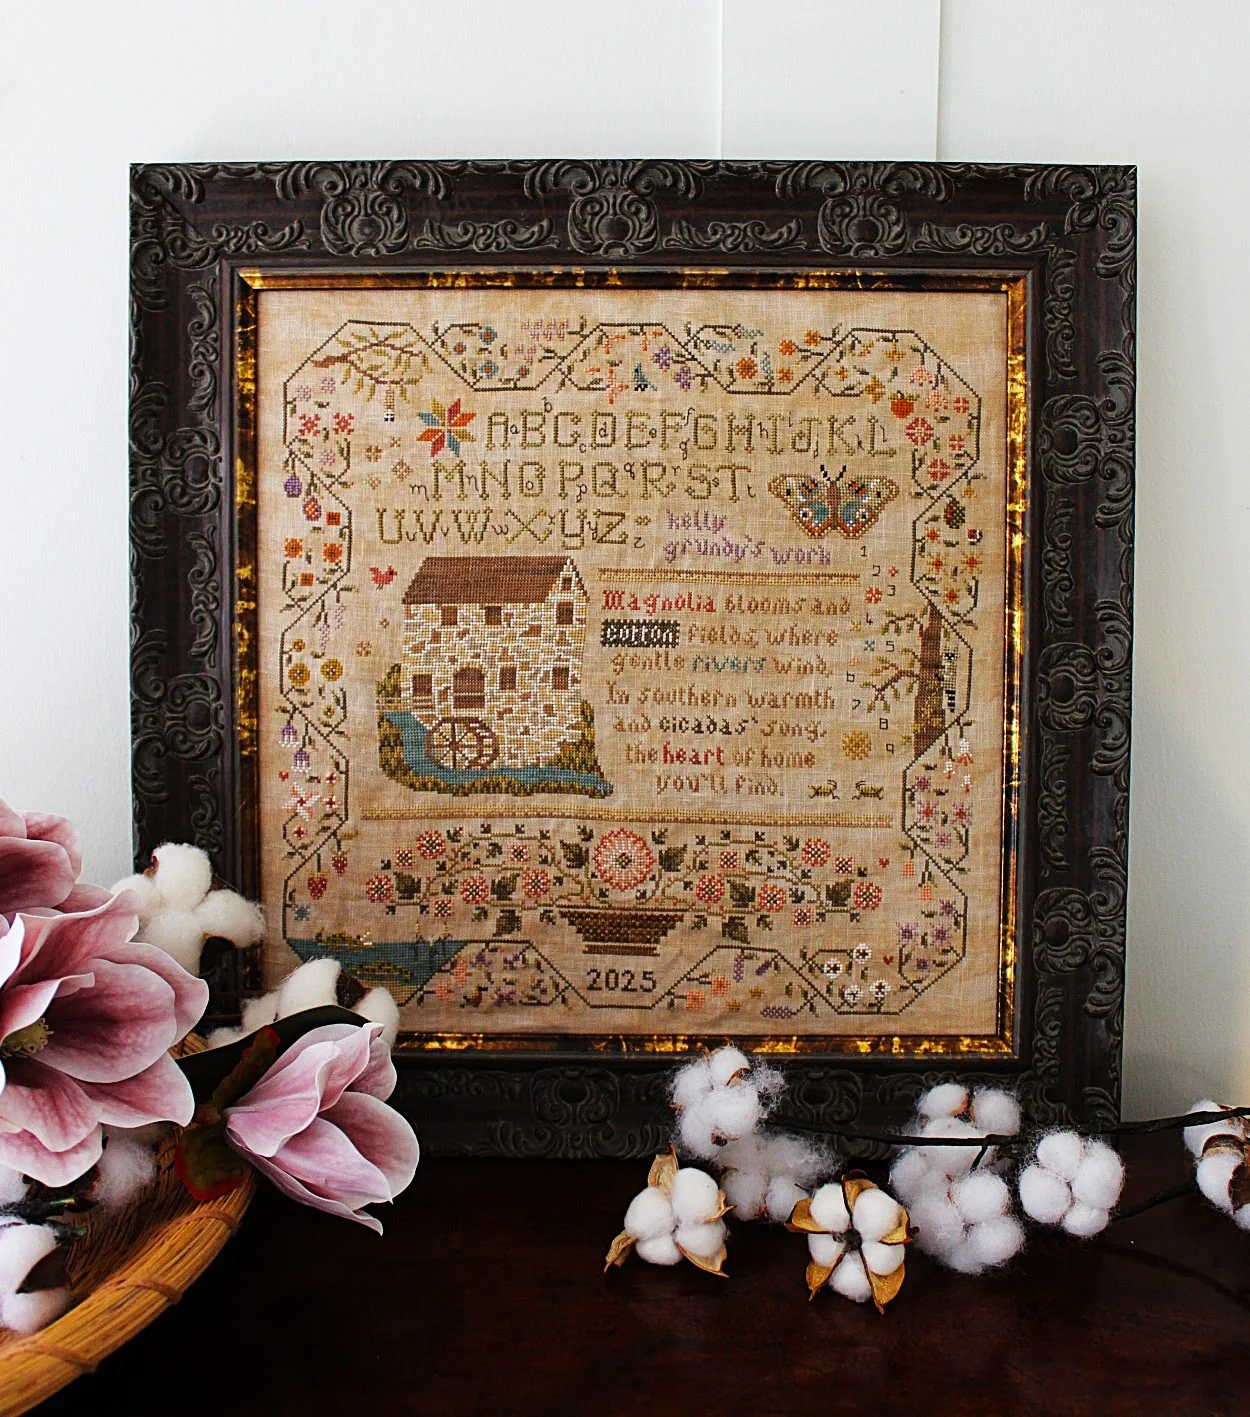 ABCDEFGHIJKL
MNOPQRST
UVWXYZ
kelly
grundy's work
Magnolia blooms and
cotton fields, where
gentle rivers wind,
In southern warmth
and cicadas' song,
the heart of home
you'll find.
1
2
3
4
5
6
7
8
9
2025